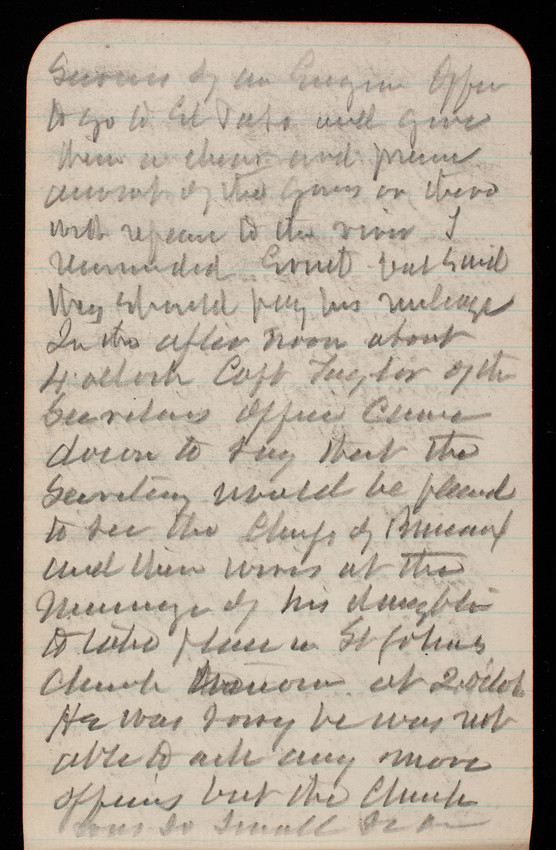 Services of an Engineer Officer
to go to El Paso and give
them a clear and precise
account of the Groins in there
with repairs to the river. I
recommended Ernst but said
they should pay his mileage
In the after noon about
4 oclock Capt Taylor of the
Secretarys office Came
down to say that the
Secretary would be pleased
to see the Chiefs of Bureaus
and their wives at the
Marriage of his daughter
to take place in St Johns
Church at 2 oclock
He was sorry he was not
able to ask any more
officers but the Church
was so small